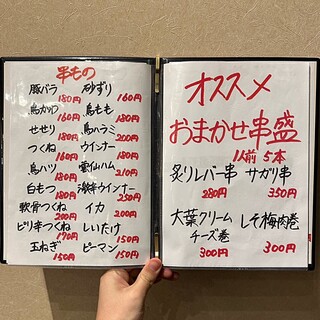 串もの
豚バラ 砂ずり
180円 160円
鳥かわ 鳥もも
160円 180円
せせり 鳥ハラミ
180円 200円
つくね ウインナー
160円 180円
鳥ハツ 雲仙ハム
180円 210円
白もつ 激辛ウインナー
180円 250円
軟骨つくね イカ
200円 200円
ピリ辛つくね しいたけ
170円 150円
玉ねぎ ピーマン
150円 150円
オススメ
おまかせ串盛
1人前 5本
炙りレバー串 サガリ串
280円 350円
大葉クリーム しそ梅肉巻
チーズ巻
300円 300円